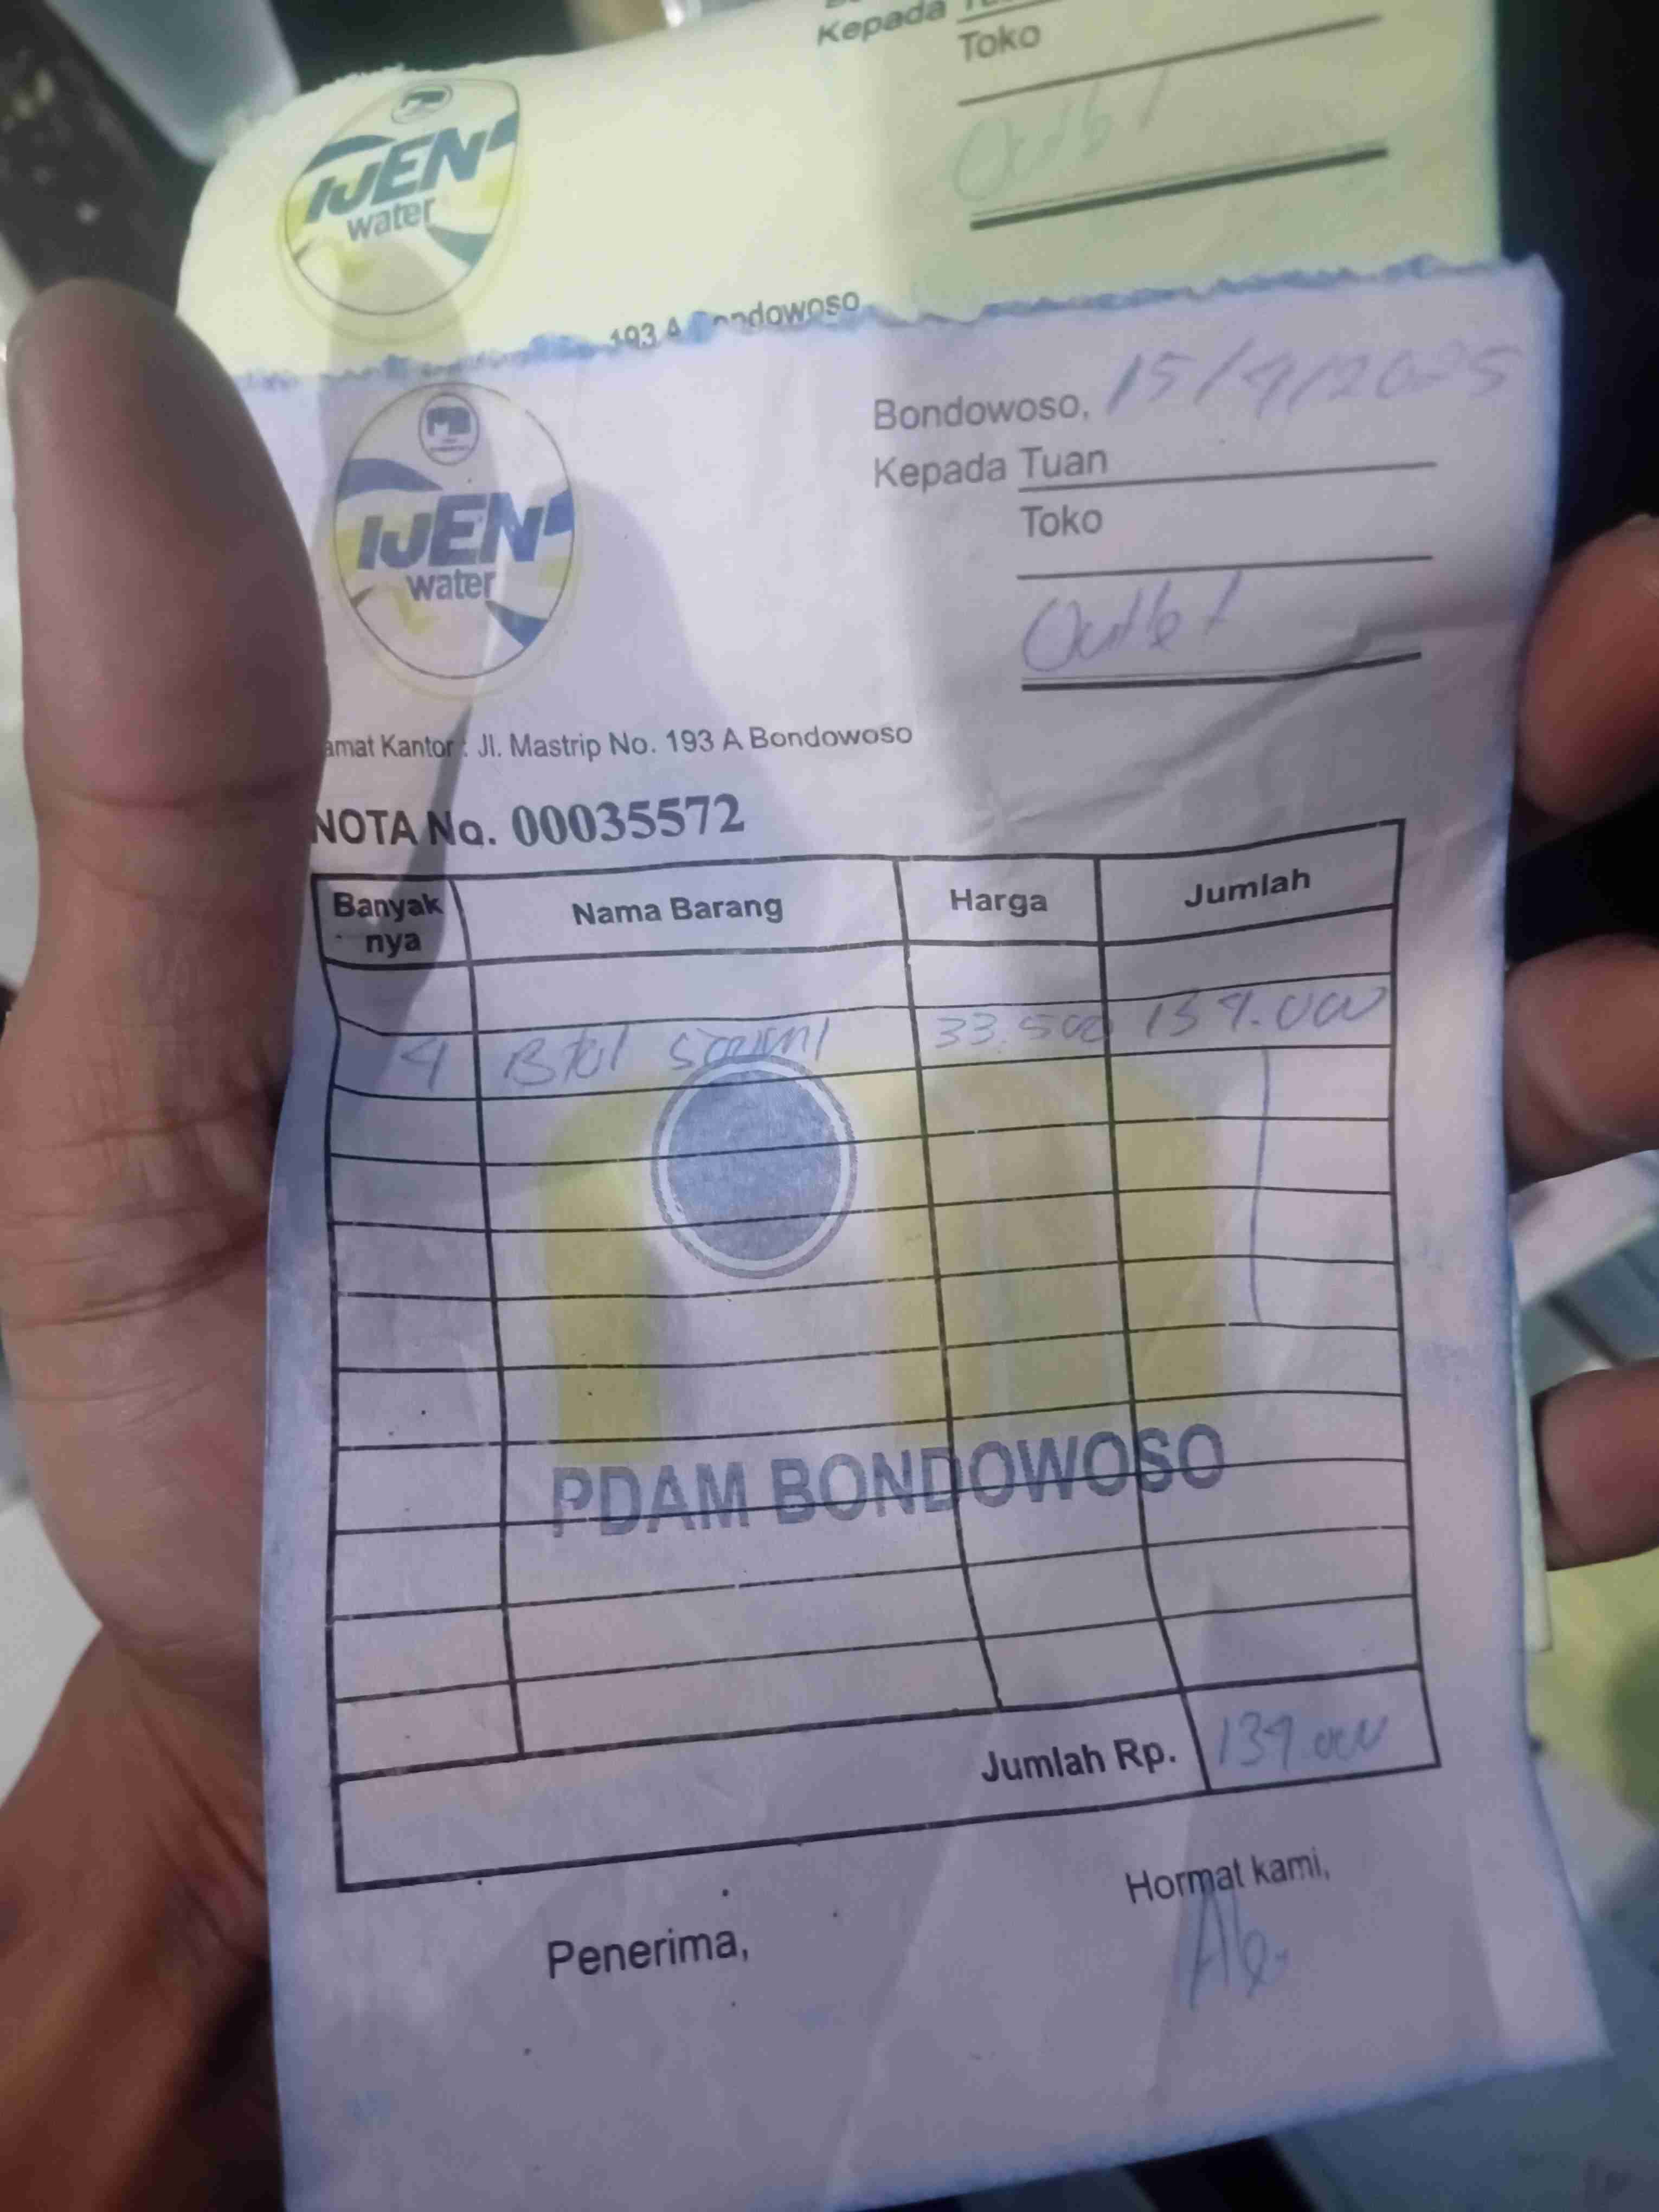 Kepada
Toko
Outlet
IJEN
water
193 A Bondowoso
IJEN
water
Bondowoso, 15/4/2025
Kepada Tuan
Toko
Outlet
amat Kantor : Jl. Mastrip No. 193 A Bondowoso
NOTA No. 00035572
Banyak nya Nama Barang Harga Jumlah
4 Btol 500ml 33.500 134.000
PDAM BONDOWOSO
Jumlah Rp. 134.000
Penerima,
Hormat kami,